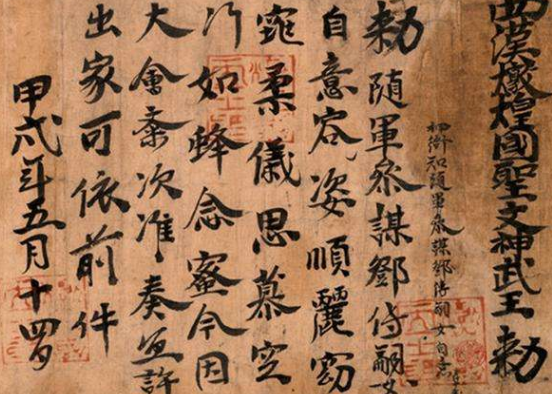 西漢燉煌國聖文神武王勅
押衙知隨軍叅謀鄧傳嗣女自意
勅隨軍叅謀鄧傳嗣女
自意容姿順麗窈
窕柔儀思慕空
門如蜂念蜜今因
大會齋次准奏宜許
出家可依前件
甲戌年五月十四日